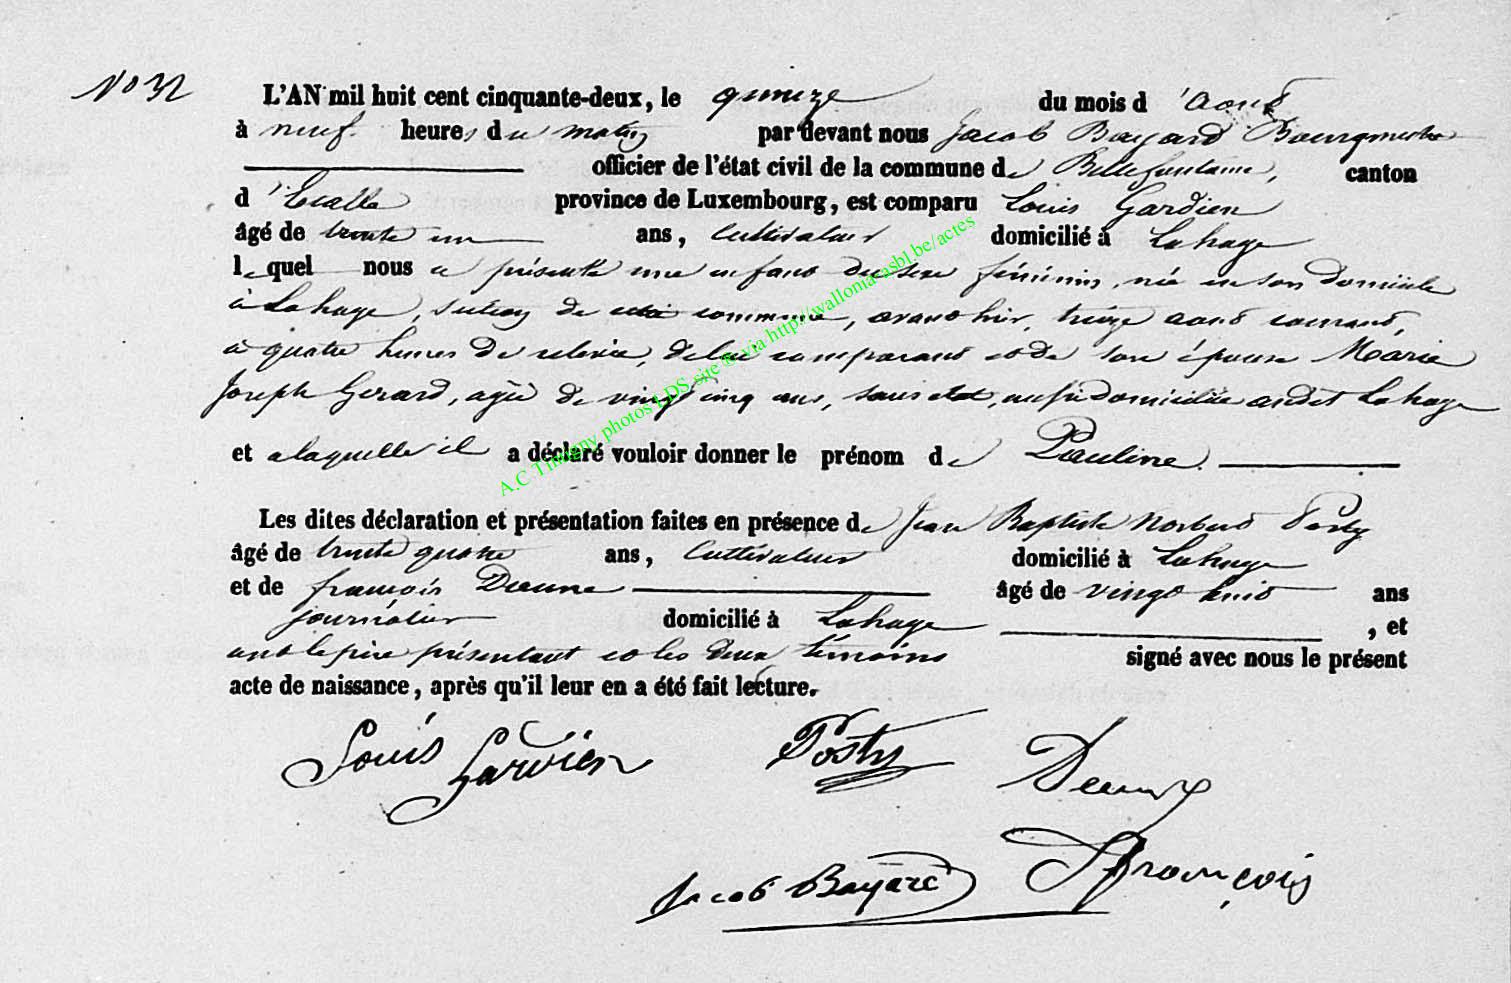 N° 32
L'AN mil huit cent cinquante-deux, le quinze du mois d'août
à neuf heures du matin par devant nous Jacob Bayard Bourgmestre
officier de l'état civil de la commune de Bellefontaine, canton
d'Etalle province de Luxembourg, est comparu Louis Gardien
âgé de trente un ans, cultivateur domicilié à Lahage
lequel nous a présenté une enfant du sexe féminin, née en son domicile
à Lahage, section de cette commune, avant hier, treize août courant,
à quatre heures de relevée, de lui comparant et de son épouse Marie
Joseph Gerard, agée de vingt cinq ans, sans état, aussi domiciliée audit Lahage
et a laquelle il a déclaré vouloir donner le prénom de Pauline.
Les dites déclaration et présentation faites en présence de Jean Baptiste Norbert Posty
âgé de trente quatre ans, cultivateur domicilié à Lahage
et de françois Deaune âgé de vingt huit ans
journalier domicilié à Lahage , et
ont le père présentant et les deux témoins signé avec nous le présent
acte de naissance, après qu'il leur en a été fait lecture.
Louis Gardien Posty
Jacob Bayard françois
A.C Tintigny photos LDS site ® via http://wallonia-asbl.be/actes